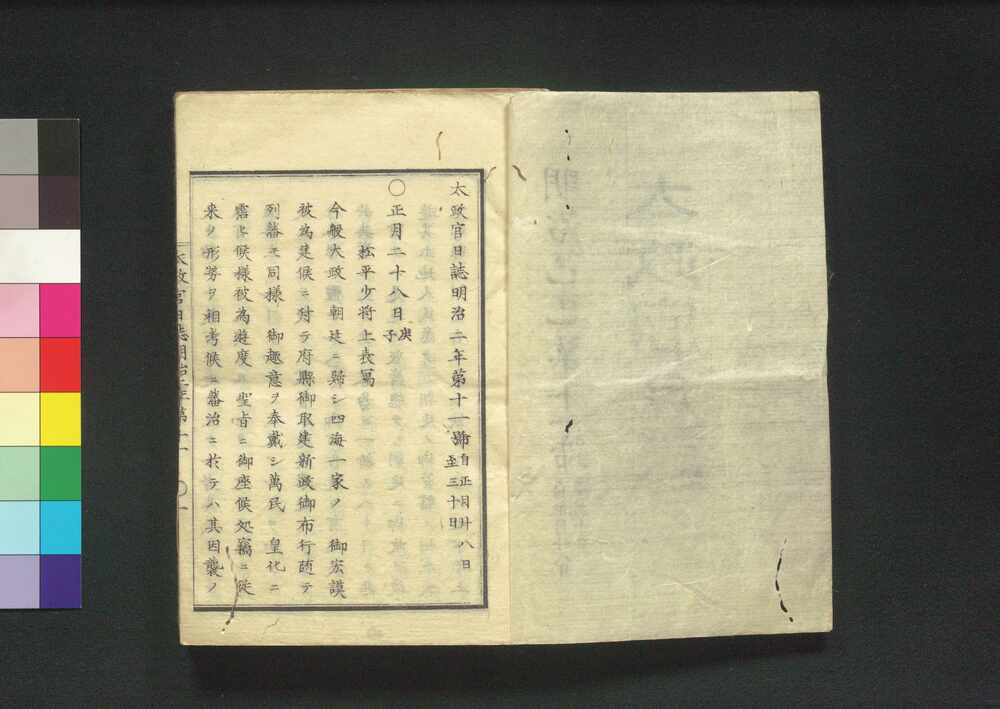 太政官日誌明治二年第十一號 自正月廿八日 至三十日
〇正月二十八日 庚子
松平少将上表寫
今般大政 朝廷ニ歸シ四海一家ノ 御宏謨
被為建候ニ付テ府縣御取建新政御布行随テ
列藩モ同様 御趣意ヲ奉戴シ萬民 皇化ニ
霑ヒ候様被為遊度 聖旨ニ御座候処竊ニ従
来ノ形勢ヲ相考候ニ藩治ニ於テハ其因襲ノ
太政官日誌明治二年第十一 〇一